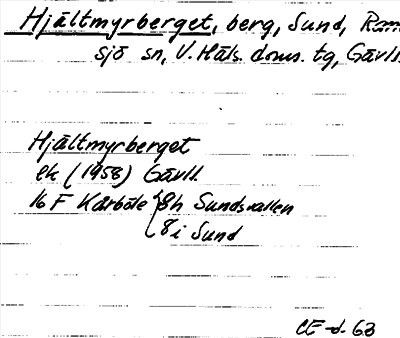 Hjältmyrberget, berg, Sund, Ram-
sjö sn, V. Häls. doms. tg, Gävll.
Hjältmyrberget
ek (1958) Gävll.
16 F Kårböle { 8h Sundsvallen
8i Sund
CE-d. 63